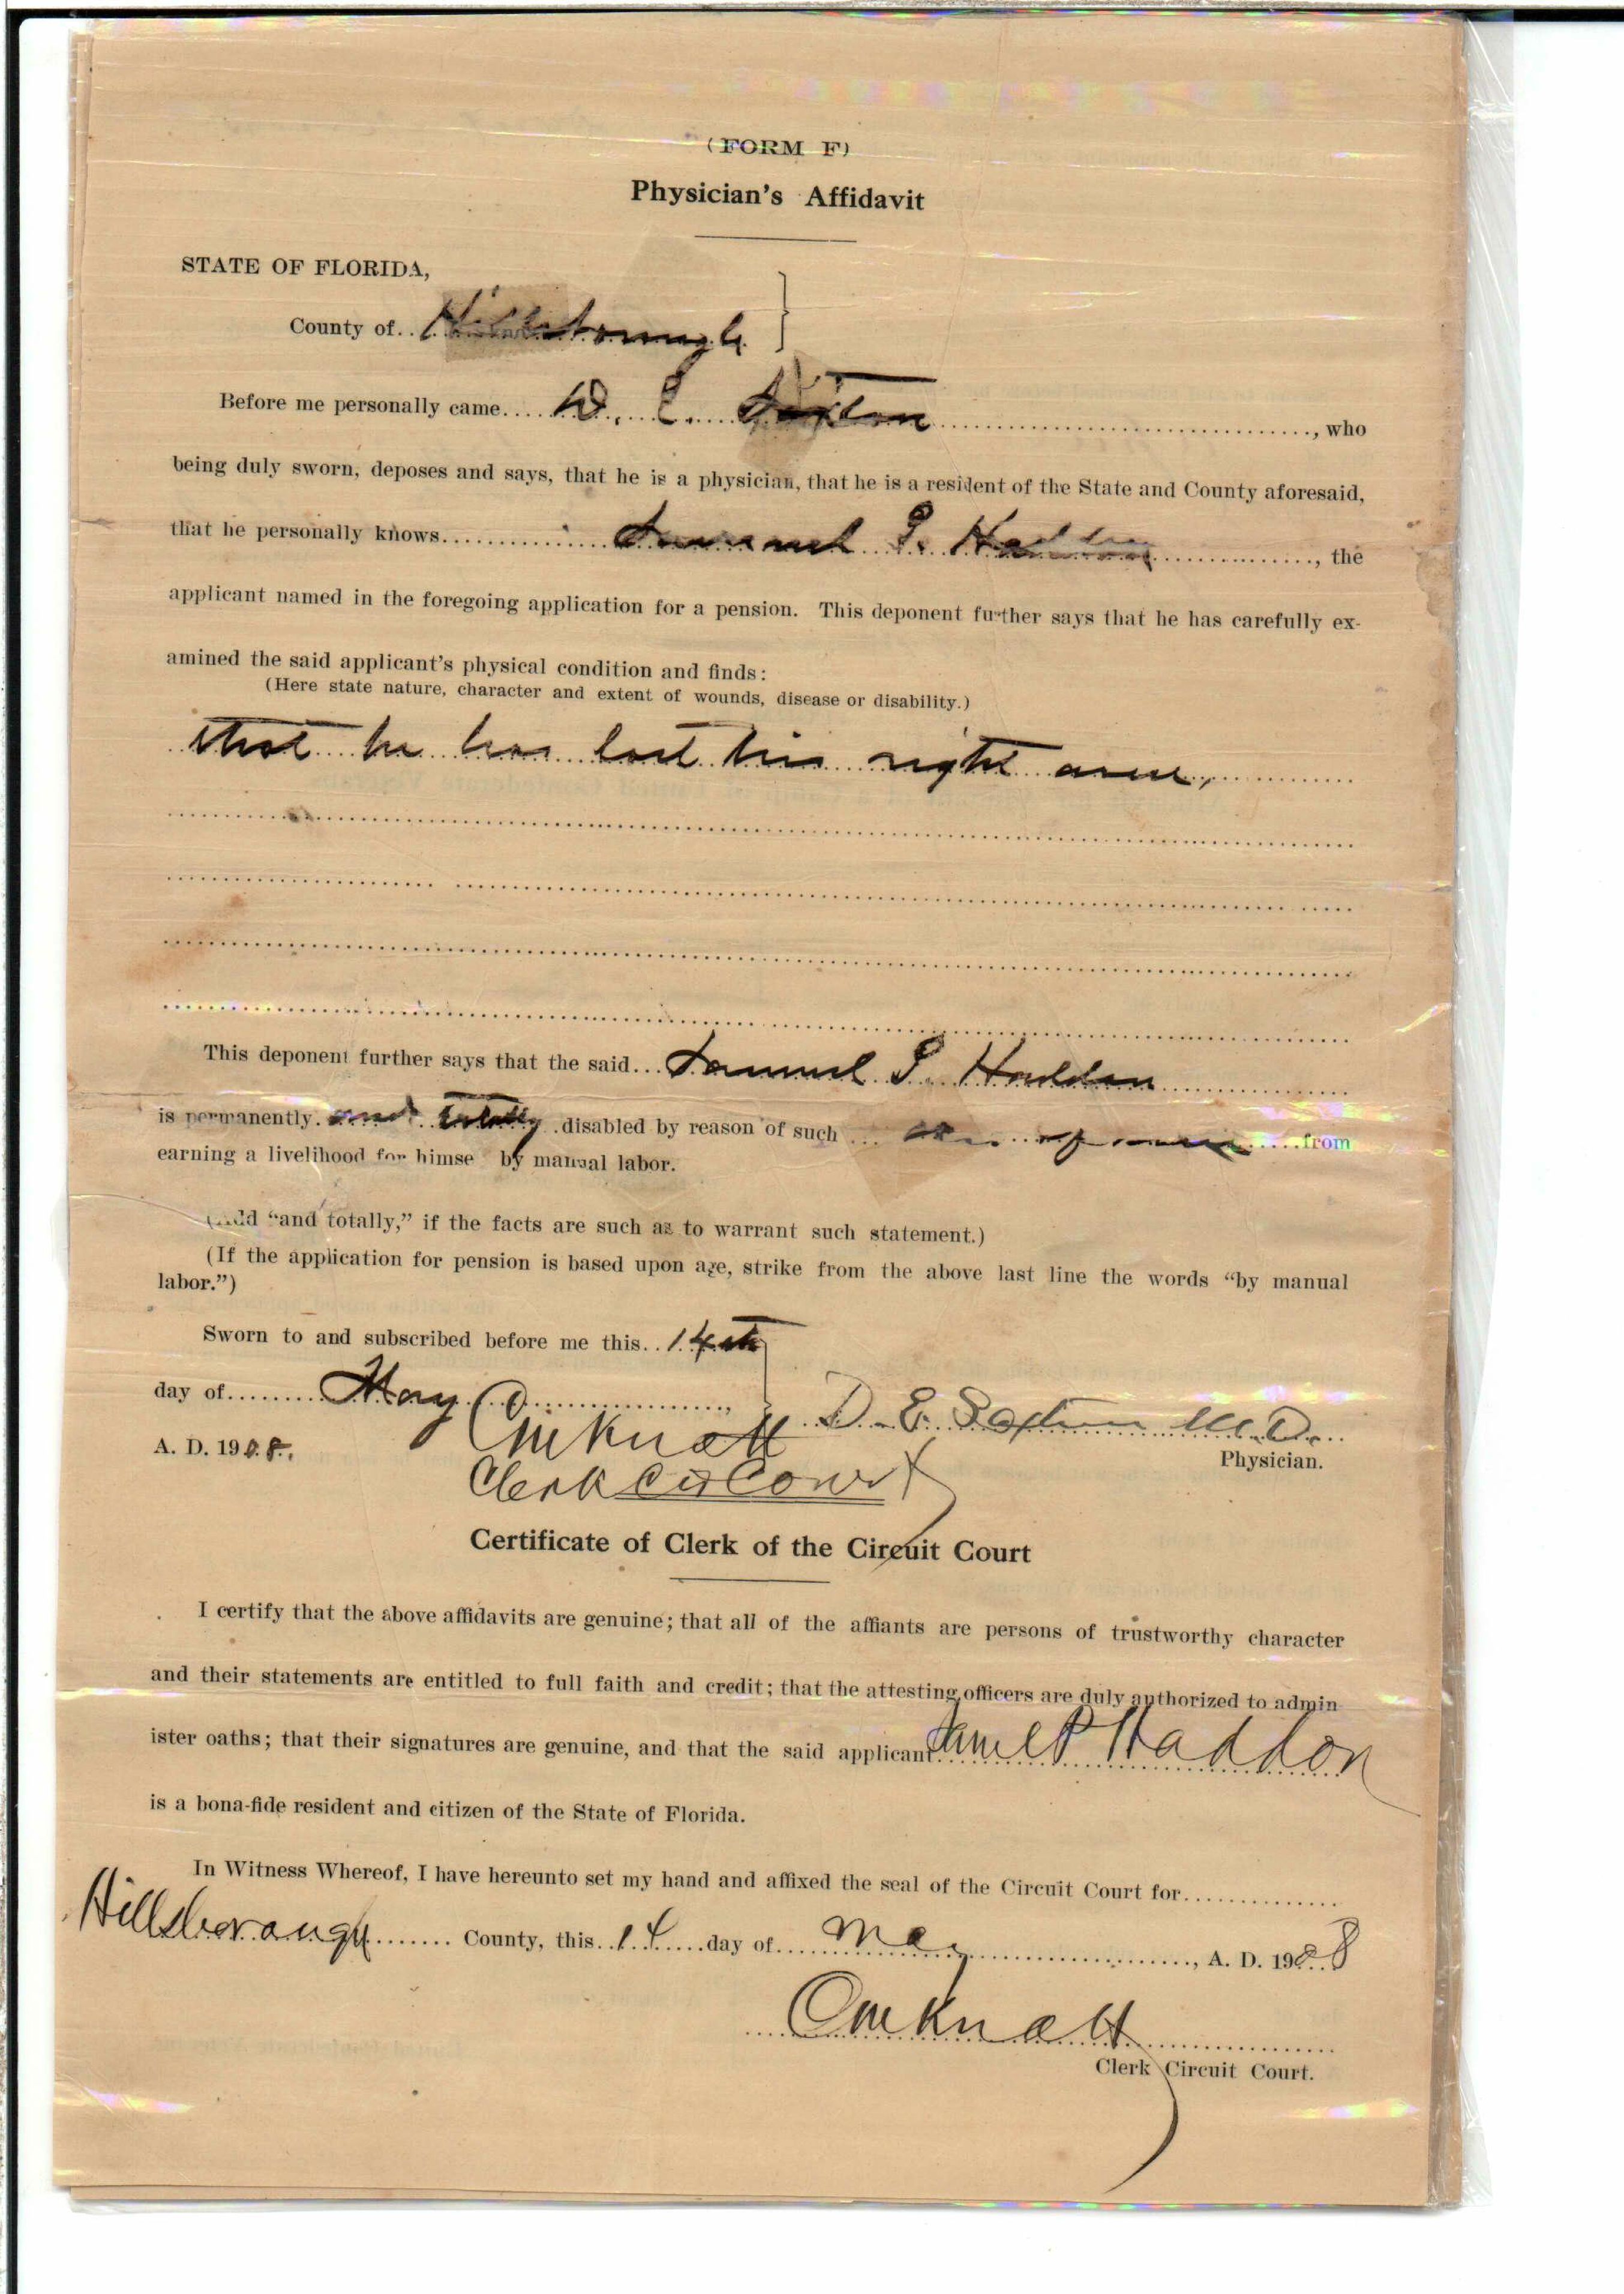 (FORM F)
Physician's Affidavit
STATE OF FLORIDA,
County of Hillsborough
Before me personally came D. E. Saxton, who
being duly sworn, deposes and says, that he is a physician, that he is a resident of the State and County aforesaid,
that he personally knows Samuel P. Haddon, the
applicant named in the foregoing application for a pension. This deponent further says that he has carefully ex-
amined the said applicant's physical condition and finds:
(Here state nature, character and extent of wounds, disease or disability.)
that he has lost his right arm,
This deponent further says that the said Samuel P. Haddon
is permanently and totally disabled by reason of such from
earning a livelihood for himse by manual labor.
(Add "and totally," if the facts are such as to warrant such statement.)
(If the application for pension is based upon age, strike from the above last line the words "by manual
labor.")
Sworn to and subscribed before me this 14th
day of May,
D. E. Saxton M.D.
A. D. 1908.
Physician.
Knott
Clerk Cir Court
Certificate of Clerk of the Circuit Court
I certify that the above affidavits are genuine; that all of the affiants are persons of trustworthy character
and their statements are entitled to full faith and credit; that the attesting officers are duly authorized to admin
ister oaths; that their signatures are genuine, and that the said applicant Saml P Haddon
is a bona-fide resident and citizen of the State of Florida.
In Witness Whereof, I have hereunto set my hand and affixed the seal of the Circuit Court for
Hillsborough County, this 14 day of May, A. D. 1908
Knott
Clerk Circuit Court.